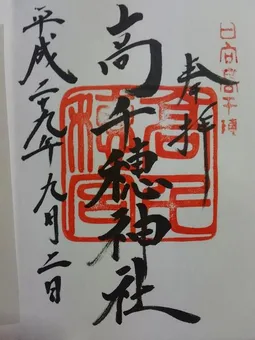 日向高千穂
奉拝
高千穂神社
平成二九年九月二日